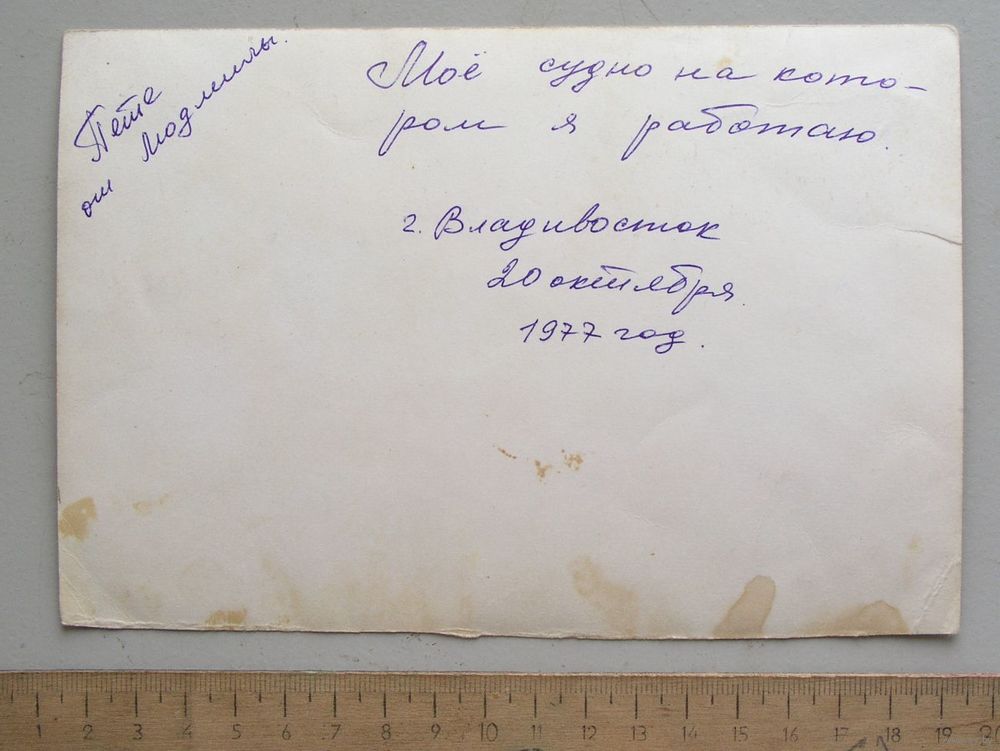 Пете
от Людмилы.
Моё судно на кото-
ром я работаю.
г. Владивосток
20 октября
1977 год.
1 2 3 4 5 6 7 8 9 10 11 12 13 14 15 16 17 18 19